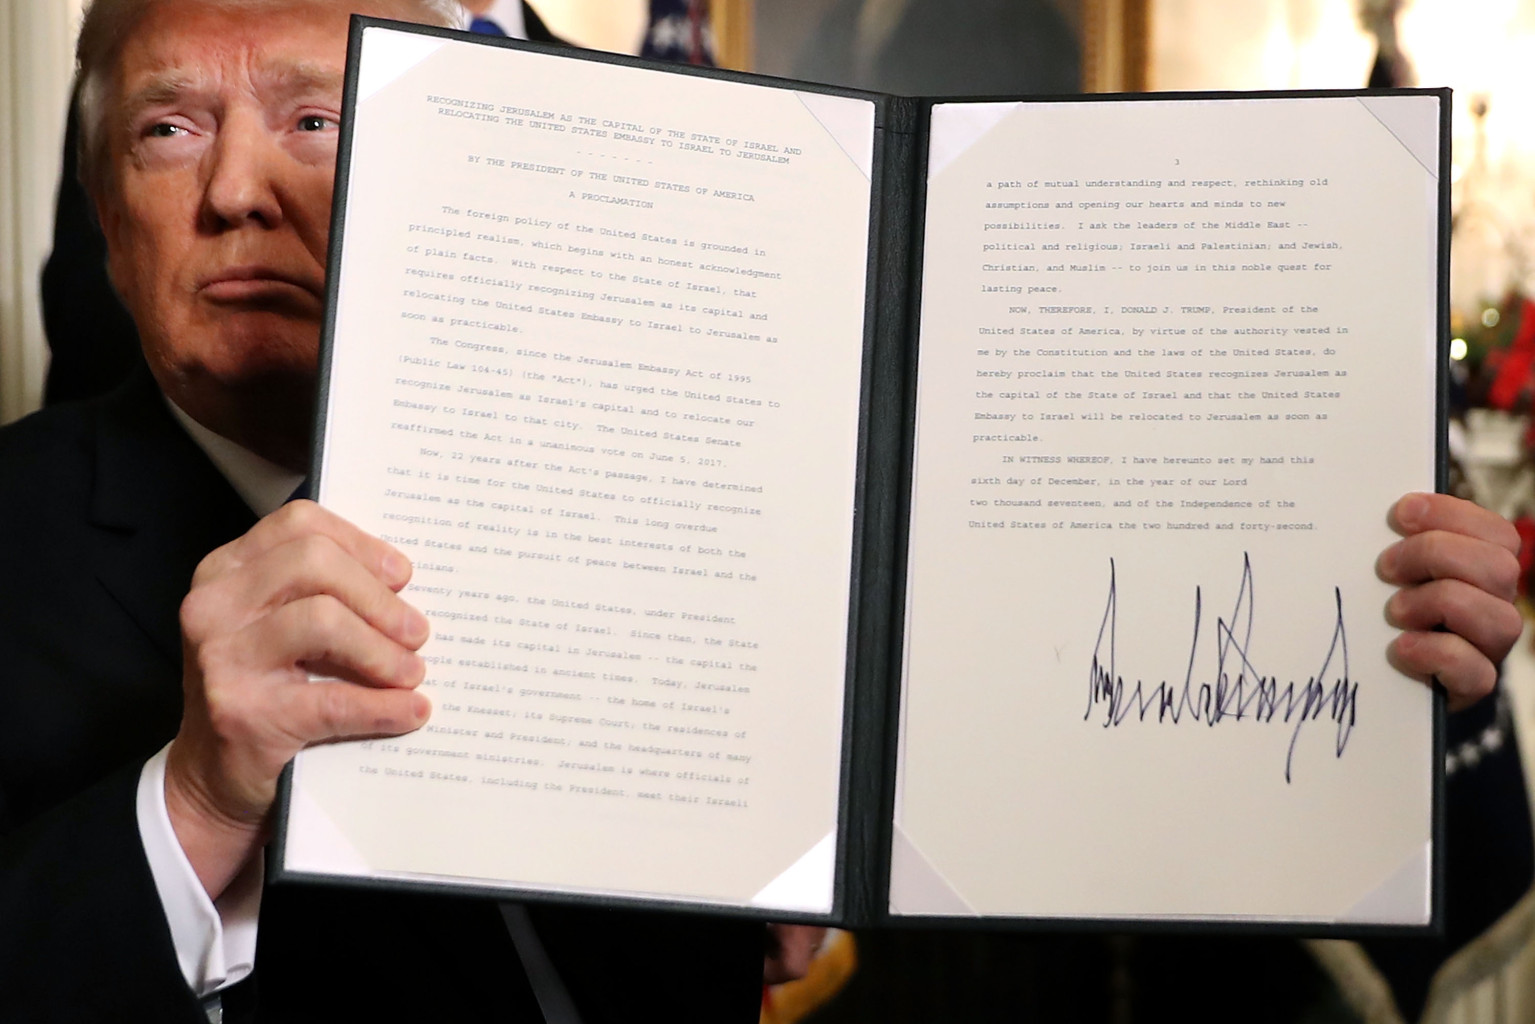 RECOGNIZING JERUSALEM AS THE CAPITAL OF THE STATE OF ISRAEL AND
RELOCATING THE UNITED STATES EMBASSY TO ISRAEL TO JERUSALEM
- - - - - - -
BY THE PRESIDENT OF THE UNITED STATES OF AMERICA
A PROCLAMATION
The foreign policy of the United States is grounded in
principled realism, which begins with an honest acknowledgment
of plain facts. With respect to the State of Israel, that
requires officially recognizing Jerusalem as its capital and
relocating the United States Embassy to Israel to Jerusalem as
soon as practicable.
The Congress, since the Jerusalem Embassy Act of 1995
(Public Law 104-45) (the "Act"), has urged the United States to
recognize Jerusalem as Israel's capital and to relocate our
Embassy to Israel to that city. The United States Senate
reaffirmed the Act in a unanimous vote on June 5, 2017.
Now, 22 years after the Act's passage, I have determined
that it is time for the United States to officially recognize
Jerusalem as the capital of Israel. This long overdue
recognition of reality is in the best interests of both the
United States and the pursuit of peace between Israel and the
tinians.
Seventy years ago, the United States, under President
recognized the State of Israel. Since then, the State
has made its capital in Jerusalem -- the capital the
eople established in ancient times. Today, Jerusalem
at of Israel's government -- the home of Israel's
the Knesset; its Supreme Court; the residences of
Minister and President; and the headquarters of many
of its government ministries. Jerusalem is where officials of
the United States, including the President, meet their Israeli
3
a path of mutual understanding and respect, rethinking old
assumptions and opening our hearts and minds to new
possibilities. I ask the leaders of the Middle East --
political and religious; Israeli and Palestinian; and Jewish,
Christian, and Muslim -- to join us in this noble quest for
lasting peace.
NOW, THEREFORE, I, DONALD J. TRUMP, President of the
United States of America, by virtue of the authority vested in
me by the Constitution and the laws of the United States, do
hereby proclaim that the United States recognizes Jerusalem as
the capital of the State of Israel and that the United States
Embassy to Israel will be relocated to Jerusalem as soon as
practicable.
IN WITNESS WHEREOF, I have hereunto set my hand this
sixth day of December, in the year of our Lord
two thousand seventeen, and of the Independence of the
United States of America the two hundred and forty-second.